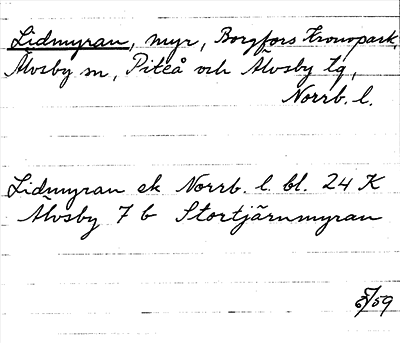 Lidmyran, myr, Borgfors Kronopark,
Älvsby sn, Piteå och Älvsby tg,
Norrb. l.
Lidmyran ek Norrb. l. bl. 24 K
Älvsby 7 b Stortjärnmyran